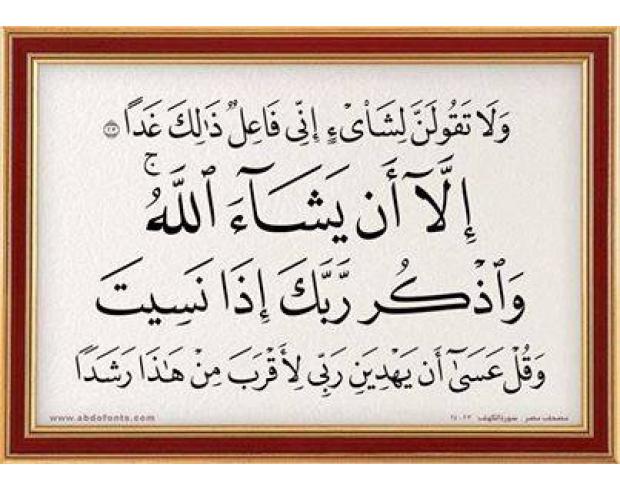 وَلَا تَقُولَنَّ لِشَا۟ىْءٍ إِنِّى فَاعِلٌ ذَٰلِكَ غَدًا ۝٢٣
إِلَّآ أَن يَشَآءَ ٱللَّهُ ۚ
وَٱذْكُر رَّبَّكَ إِذَا نَسِيتَ
وَقُلْ عَسَىٰٓ أَن يَهْدِيَنِ رَبِّى لِأَقْرَبَ مِنْ هَٰذَا رَشَدًا
www.abdofonts.com
مصحف مصر . سورة الكهف: ٢٣-٢٤